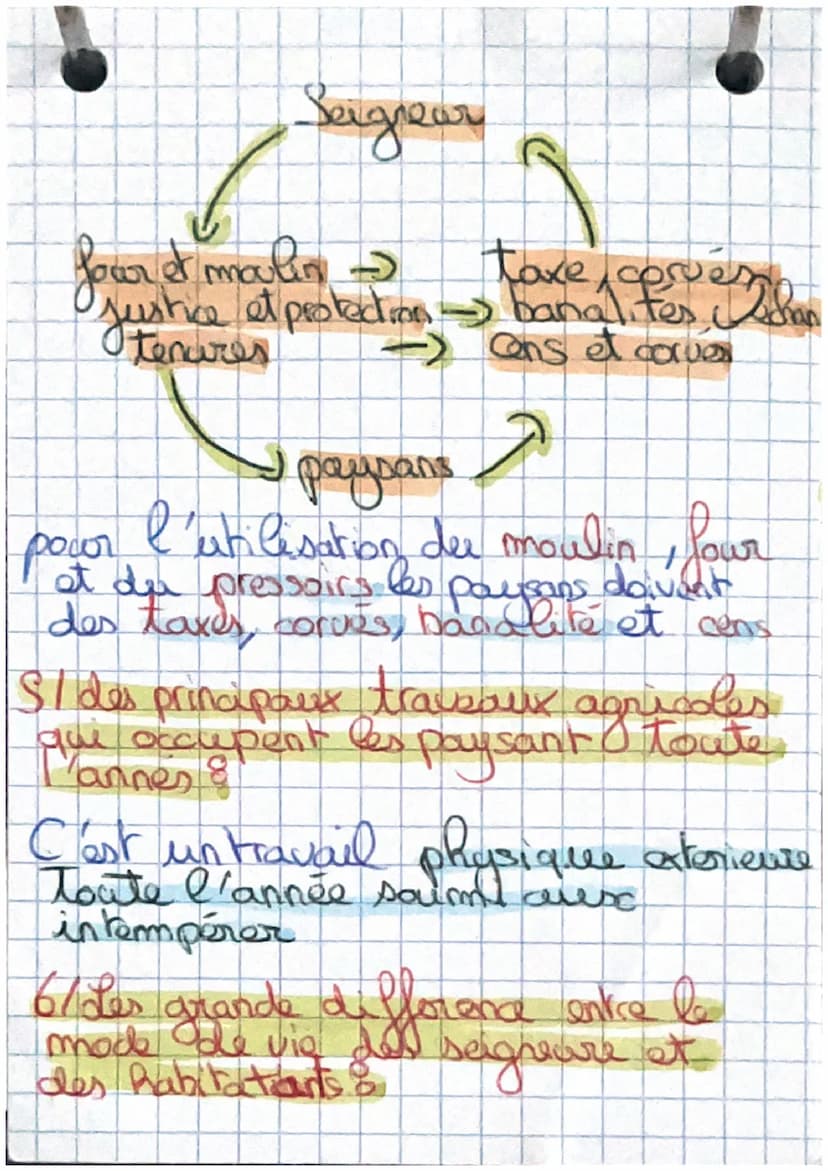 Seigneur
four et moulin → taxe, corvés,
justice et protection → banalités
tenures → cens et corvés
paysans
pour l'utilisation du moulin, four
et du pressoirs les paysans doivent
des taxes, corvés, banalité et cens
5/ des principaux travaux agricoles
qui occupent les paysant toute
l'annés :
C'est un travail physique exterieure
Toute l'année soumi aux
intempérer
6/ Les grande différence entre le
mode de vie des seigneure et
des habitatants :